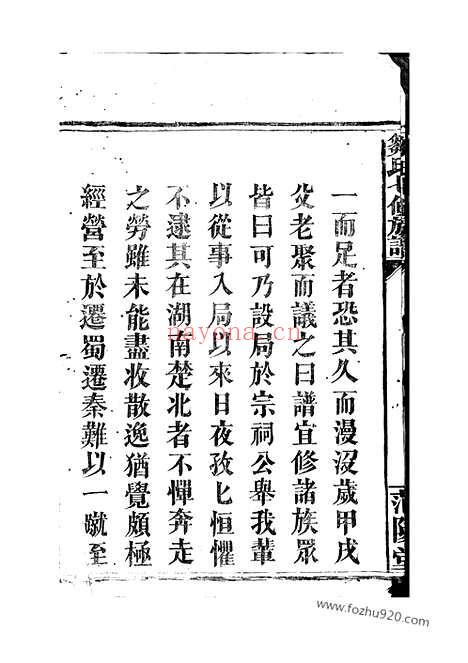 一而足者恐其久而漫沒歲甲戌
父老聚而議之曰譜宜修諸族眾
皆曰可乃設局於宗祠公舉我輩
以從事入局以來日夜孜匕恒懼
不逮其在湖南楚北者不憚奔走
之勞雖未能盡收散逸猶覺頗極
經營至於遷蜀遷秦難以一蹴至
nayona.cn
www.fozhu920.com